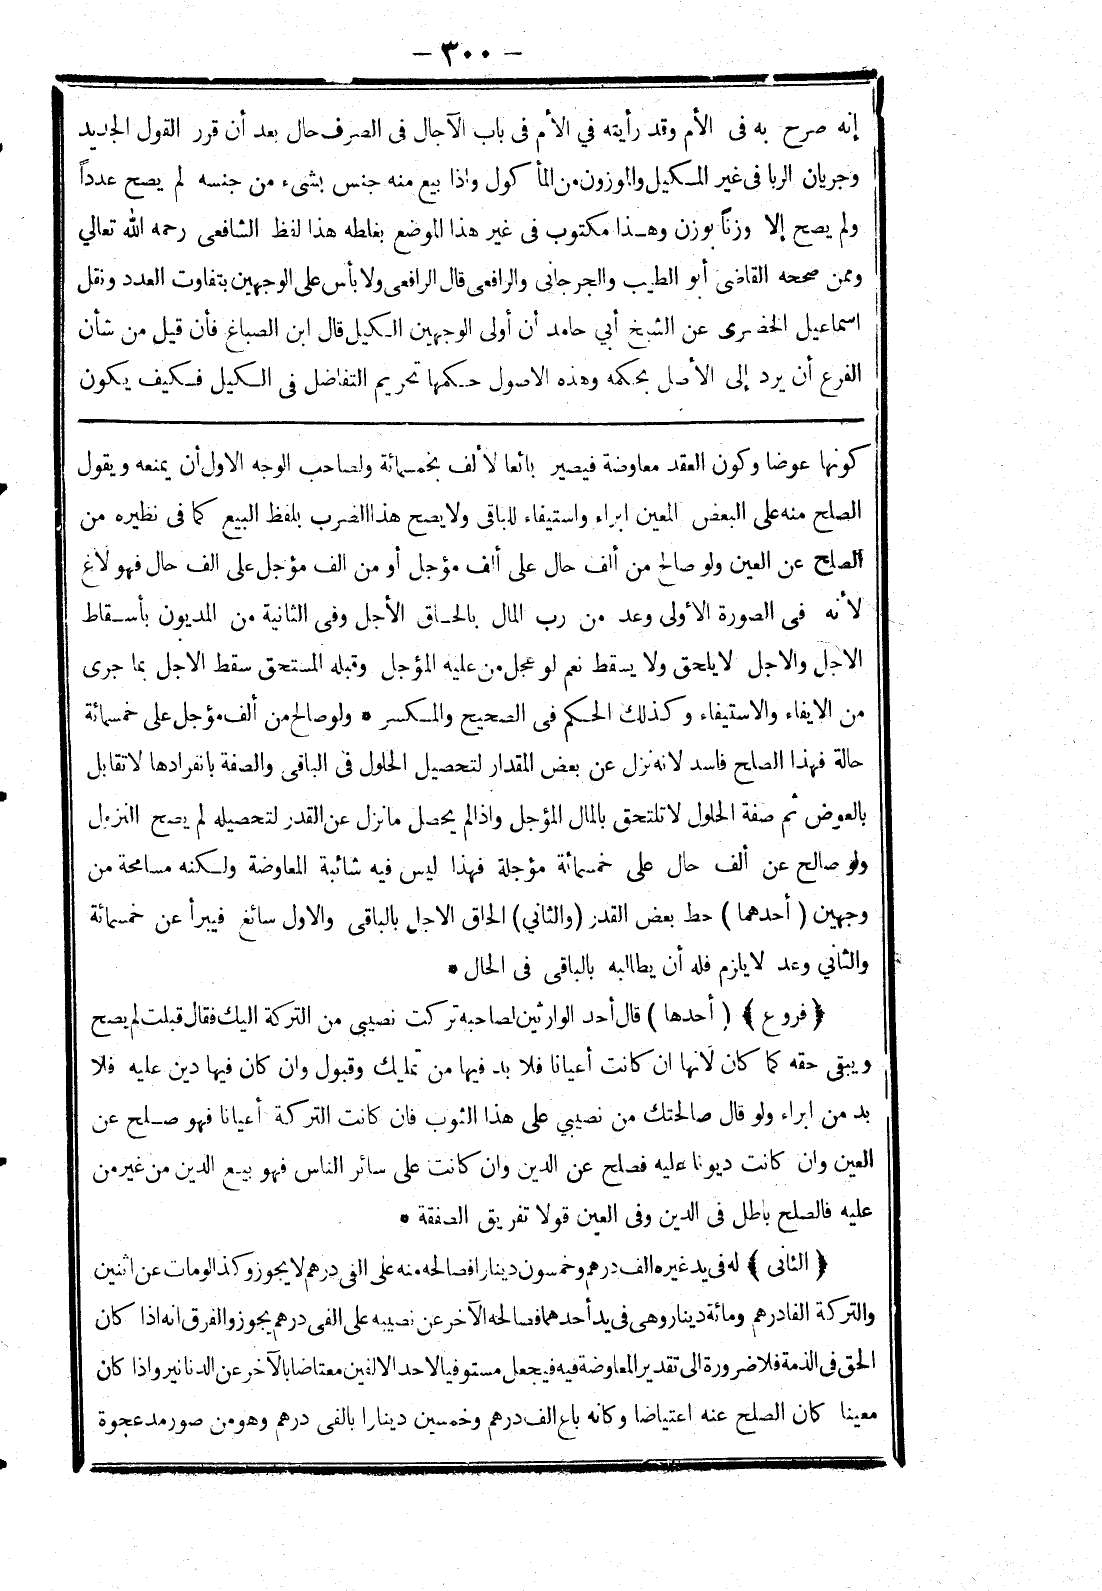 – ٣٠٠ –
إنه صرح به فى الأم وقد رأيته في الأم فى باب الآجال فى الصرف حال بعد أن قرر القول الجديد
وجريان الربا فى غير المكيل والموزون من المأكول واذا بيع منه جنس بشىء من جنسه لم يصح عدداً
ولم يصح إلا وزناً بوزن وهذا مكتوب فى غير هذا الموضع بغلطه هذا لفظ الشافعى رحمه الله تعالي
وممن صححه القاضى أبو الطيب والجرجانى والرافعى قال الرافعى ولا بأس على الوجهين بتفاوت العدد ونقل
اسماعيل الحضرى عن الشيخ أبي حامد أن أولى الوجهين الكيل قال ابن الصباغ فأن قيل من شأن
الفرع أن يرد إلى الأصل بحكمه وهذه الاصول حكمها تحريم التفاضل فى الكيل فكيف يكون
كونها عوضا وكون العقد معاوضة فيصير بائعا لألف بخمسمائة ولصاحب الوجه الاول أن يمنعه ويقول
الصلح منه على البعض المعين ابراء واستيفاء للباقى ولا يصح هذا الضرب بلفظ البيع كما فى نظيره من
الصلح عن العين ولو صالح من ألف حال على ألف مؤجل أو من الف مؤجل على الف حال فهو لاغ
لأنه فى الصورة الاولى وعد من رب المال بالحاق الأجل وفى الثانية من المديون بأسقاط
الاجل والاجل لا يلحق ولا يسقط نعم لو عجل من عليه المؤجل وقبله المستحق سقط الاجل بما جرى
من الايفاء والاستيفاء وكذلك الحكم فى الصحيح والمكسر * ولو صالح من ألف مؤجل على خمسمائة
حالة فهذا الصلح فاسد لانه نزل عن بعض المقدار لتحصيل الحلول فى الباقى والصفة بانفرادها لا تقابل
بالعوض ثم صفة الحلول لا تلتحق بالمال المؤجل واذا لم يحصل ما نزل عن القدر لتحصيله لم يصح النزول
ولو صالح عن ألف حال على خمسمائة مؤجلة فهذا ليس فيه شائبة المعاوضة ولكنه مسامحة من
وجهين ( أحدهما ) حط بعض القدر (والثاني) الحاق الاجل بالباقى والاول سائغ فيبرأ عن خمسمائة
والثاني وعد لا يلزم فله أن يطالبه بالباقى فى الحال *
﴿ فروع ﴾ ( أحدها ) قال أحد الوارثين لصاحبه تركت نصيبى من التركة اليك فقال قبلت لم يصح
ويبقى حقه كما كان لأنها ان كانت أعيانا فلا بد فيها من تمليك وقبول وان كان فيها دين عليه فلا
بد من ابراء ولو قال صالحتك من نصيبي على هذا الثوب فان كانت التركة أعيانا فهو صلح عن
العين وان كانت ديونا عليه فصلح عن الدين وان كانت على سائر الناس فهو بيع الدين من غير من
عليه فالصلح باطل فى الدين وفى العين قولا تفريق الصفقة *
﴿ الثانى ﴾ له فى يد غيره الف درهم وخمسون دينارا فصالحه منه على الفى درهم لا يجوز وكذا لو مات عن اثنين
والتركة الفا درهم ومائة دينار وهى فى يد أحدهما فصالحه الآخر عن نصيبه على الفى درهم يجوز والفرق انه اذا كان
الحق فى الذمة فلا ضرورة الى تقدير المعاوضة فيه فيجعل مستوفيا لاحد الالفين معتاضا بالآخر عن الدنانير واذا كان
معينا كان الصلح عنه اعتياضا وكانه باع الف درهم وخمسين دينارا بالفى درهم وهو من صور مد عجوة